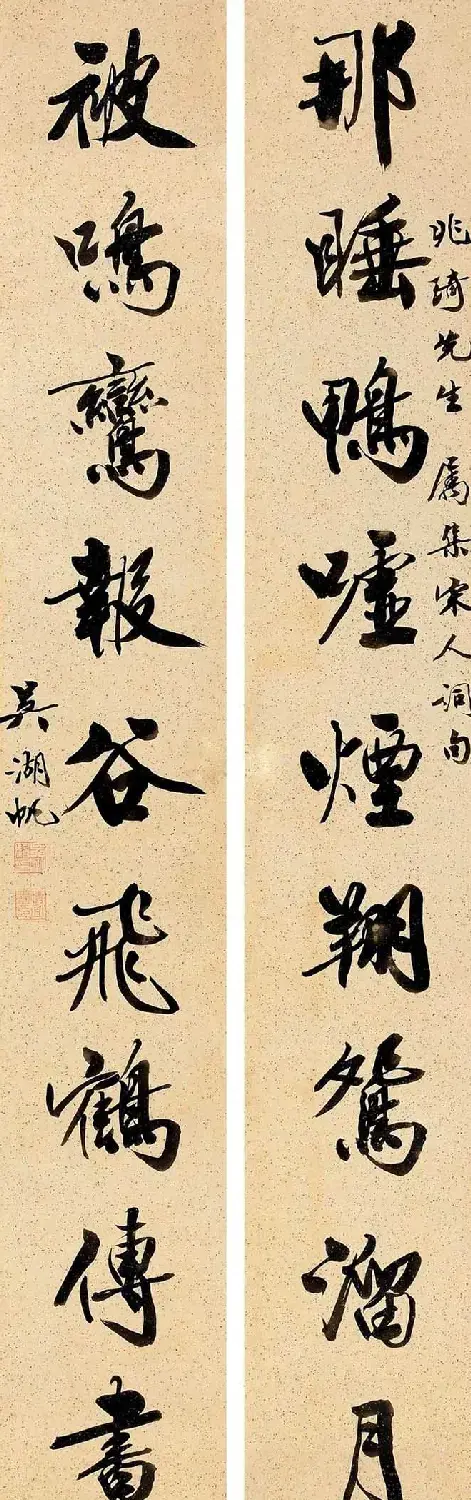 那睡鴨嘘煙翔鴛溜月
兆琦先生 属集宋人詞句
被鳴鸞報谷飛鶴傳書
吳湖帆